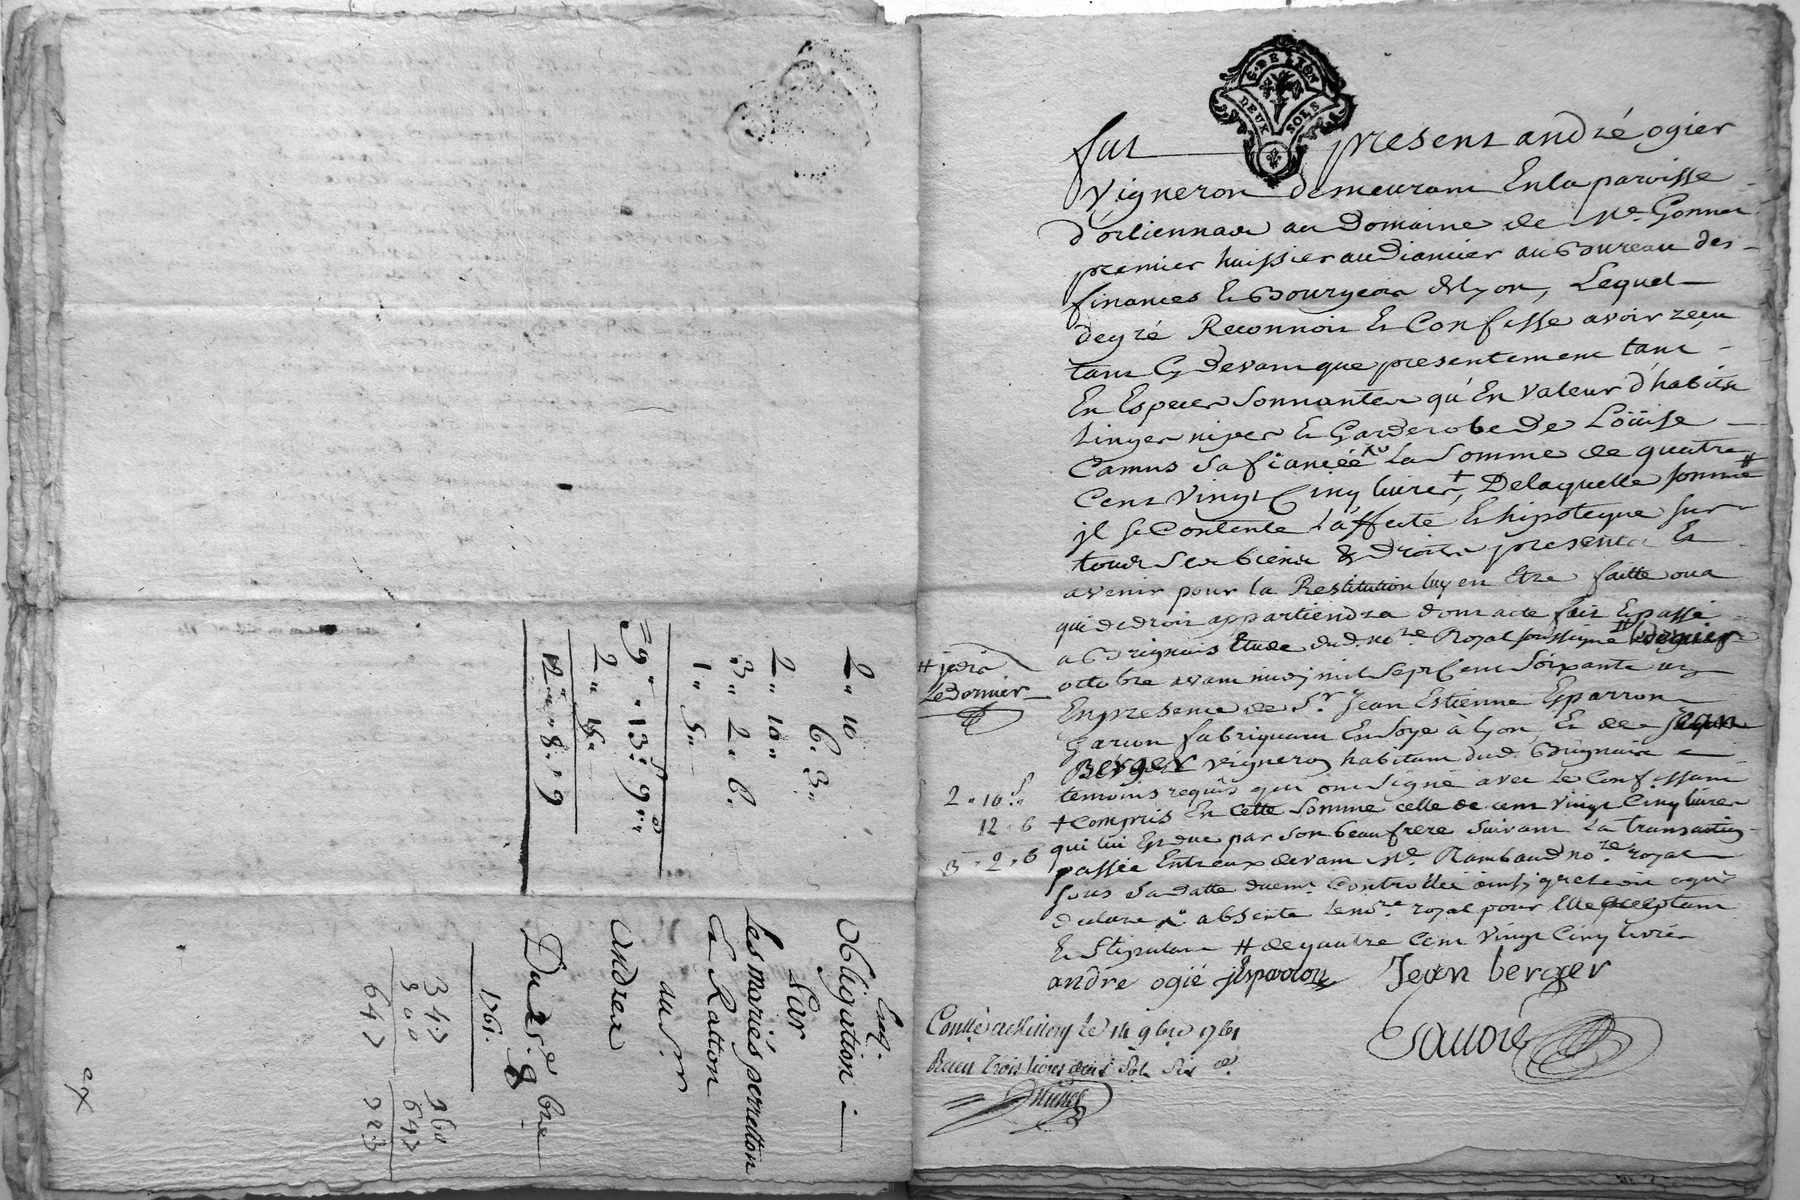 2 " 10
6 . 3 "
2 " 10 "
3 " 2 " 6 .
1 " 5 "
39 " " 13 : 9
2 " 15 "
42 " " 8 " 9
Obligation
Sur
Les mariés perretton
Et Ratton
au Sr
andrea
Du 2 8bre
1761.
347
300
647
160
647
G. DE LION
DEUX SOLS
fut present andré ogier
Vigneron demeurant En la paroisse
d'orliennas au Domaine de Me Gonnet
premier huissier audiancier au Bureau des
finances Et Bourgeois de lyon, Lequel
de gré Reconnoit Et Confesse avoir reçu
tant Cy devant que presentement tant
En Especes Sonnantes qu'En Valeur d'habits
Linges nipes Et Garderobe de Loüise
Camus Sa fiancée La Somme de quatre
Cent Vingt Cinq livres +, De laquelle somme #
il se Contente L'affecté Et hipoteque sur
tous Ses biens & droits presents Et
avenir pour la Restitution luy en Etre faitte ou a
qui de droit appartiendra dont acte fait Et passé
a Brignais Etude dud. nore Royal soussigné
# jeudi
Le dernier
octobre avant midy mil Sept Cent Soixante un
En presence de Sr. Jean Estienne Esparron
Garçon fabriquant En Soye à Lyon, Et de Jean
Berger Vigneron habitant dud. Brignais
temoins requis qui ont Signé avec Le Confessant
2 " 10 s "
12 . 6
3 - 2 . 6
+ Compris En Cette Somme celle de cent vingt Cinq livres
qui lui Est due par Son beaufrere Suivant La transaction
passée Entr'eux devant Me Rambaud nore royal
sous Sa datte duemt Controllée
declaré absente Le nore royal pour Elle acceptant
Et Stipulant # de quatre Cent Vingt Cinq livres
andre ogié JEsparron Jean berger
Contlé a Millery le 14 9bre 1761
Reçu trois livres deux Sols Six d.